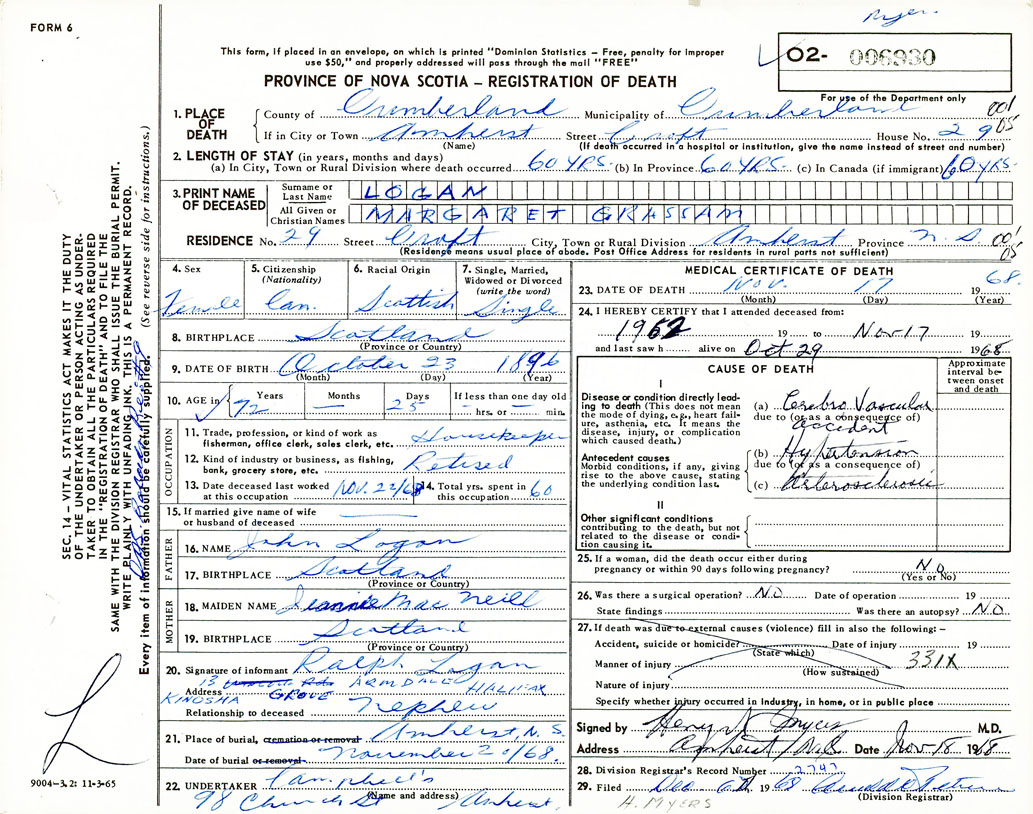 FORM 6
Myers
This form, if placed in an envelope, on which is printed "Dominion Statistics – Free, penalty for improper
use $50," and properly addressed will pass through the mail "FREE"
O2- 006930
For use of the Department only
PROVINCE OF NOVA SCOTIA – REGISTRATION OF DEATH
1. PLACE OF DEATH County of Cumberland Municipality of Cumberland 001
If in City or Town Amherst Street Croft House No. 29 05
(Name) (If death occurred in a hospital or institution, give the name instead of street and number)
2. LENGTH OF STAY (in years, months and days)
(a) In City, Town or Rural Division where death occurred 60 YRS. (b) In Province 60 YRS. (c) In Canada (if immigrant) 60 YRS.
3. PRINT NAME OF DECEASED Surname or Last Name LOGAN
All Given or Christian Names MARGARET GRASSAM
RESIDENCE No. 29 Street Croft City, Town or Rural Division Amherst Province N.S. 001
(Residence means usual place of abode. Post Office Address for residents in rural parts not sufficient) 05
4. Sex Female
5. Citizenship (Nationality) Can.
6. Racial Origin Scottish
7. Single, Married, Widowed or Divorced (write the word) Single
8. BIRTHPLACE Scotland
(Province or Country)
9. DATE OF BIRTH October 23 1896
(Month) (Day) (Year)
10. AGE in Years 72 Months – Days 25 If less than one day old – hrs. or – min.
OCCUPATION
11. Trade, profession, or kind of work as fisherman, office clerk, sales clerk, etc. Housekeeper
12. Kind of industry or business, as fishing, bank, grocery store, etc. Retired
13. Date deceased last worked at this occupation NOV. 22/68 14. Total yrs. spent in this occupation 60
15. If married give name of wife or husband of deceased
FATHER
16. NAME John Logan
17. BIRTHPLACE Scotland
(Province or Country)
MOTHER
18. MAIDEN NAME Jeannie Mac Neill
19. BIRTHPLACE Scotland
(Province or Country)
20. Signature of informant Ralph Logan
Address 13 KINOSHA GROVE ARMDALE HALIFAX
Relationship to deceased nephew
21. Place of burial, cremation or removal Amherst, N.S.
Date of burial or removal November 20/68.
22. UNDERTAKER Campbell's
(Name and address)
98 Church St Amherst.
MEDICAL CERTIFICATE OF DEATH
23. DATE OF DEATH Nov. 17 1968.
(Month) (Day) (Year)
24. I HEREBY CERTIFY that I attended deceased from:
1962 19 to Nov 17 19
and last saw h alive on Oct 29 1968
CAUSE OF DEATH
Approximate interval between onset and death
I
Disease or condition directly leading to death (This does not mean the mode of dying, e.g., heart failure, asthenia, etc. It means the disease, injury, or complication which caused death.)
(a) Cerebro Vascular Accident
due to (or as a consequence of)
Antecedent causes
Morbid conditions, if any, giving rise to the above cause, stating the underlying condition last.
(b) Hypertension
due to (or as a consequence of)
(c) Arterosclerosis
II
Other significant conditions
contributing to the death, but not related to the disease or condition causing it.
25. If a woman, did the death occur either during pregnancy or within 90 days following pregnancy? No
(Yes or No)
26. Was there a surgical operation? NO Date of operation 19
State findings Was there an autopsy? NO
27. If death was due to external causes (violence) fill in also the following: –
Accident, suicide or homicide? Date of injury 19
(State which)
Manner of injury 331X
(How sustained)
Nature of injury
Specify whether injury occurred in Industry, in home, or in public place
Signed by Henry N Myers M.D.
Address Amherst N.S. Date Nov 18 1968
28. Division Registrar's Record Number 2747
29. Filed Dec 6th 1968
(Division Registrar)
H. MYERS
SEC. 14 – VITAL STATISTICS ACT MAKES IT THE DUTY
OF THE UNDERTAKER OR PERSON ACTING AS UNDER-
TAKER TO OBTAIN ALL THE PARTICULARS REQUIRED
IN THE "REGISTRATION OF DEATH" AND TO FILE THE
SAME WITH THE DIVISION REGISTRAR WHO SHALL ISSUE THE BURIAL PERMIT.
WRITE PLAINLY WITH UNFADING INK. THIS IS A PERMANENT RECORD.
Every item of information should be carefully supplied. (See reverse side for instructions.)
9004–3.2: 11-3-65